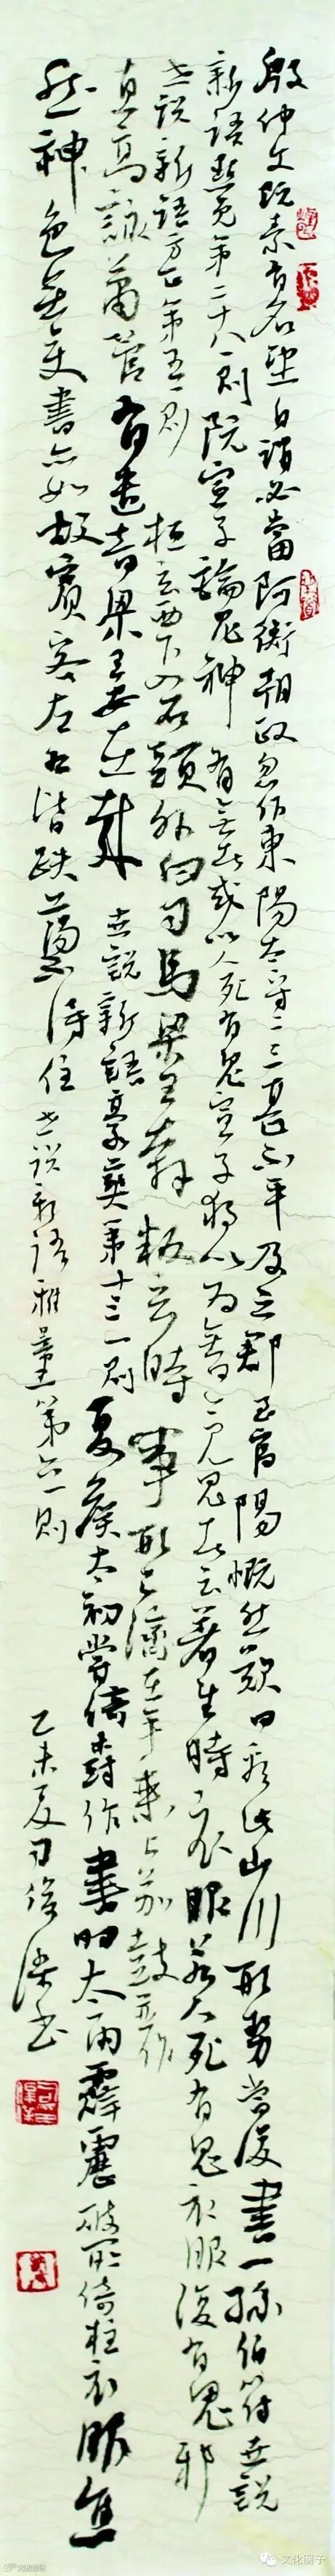 殷仲文既素有名望自謂必當阿衡朝政忽作東陽太守意甚不平及之郡至富陽慨然歎曰看此山川形勢當復出一孫伯符世說
新語黜免第二十八一則 阮宣子論鬼神有無者或以人死有鬼宣子獨以為無曰今見鬼者云著生時衣服若人死有鬼衣服復有鬼邪
世說新語方正第五一則 桓玄西下入石頭外白司馬梁王奔叛玄時事形已濟在平乘上笳鼓並作
直高詠簫管有遺音梁王安在哉 世說新語豪爽第十三一則 夏侯太初嘗倚柱作書時大雨霹靂破所倚柱衣服焦
然神色無變書亦如故賓客左右皆跌蕩不得住世說新語雅量第六一則
乙未夏
文化圈子